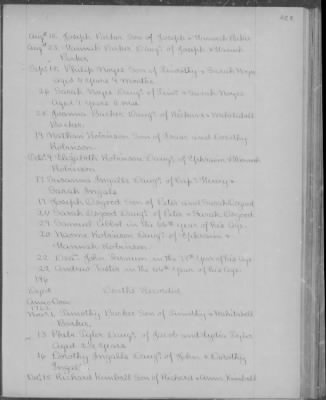 Aug. 16. Joseph Parker Son of Joseph & Hannah Parker
Aug. 23. Hannah Parker Daug. of Joseph & Hannah
Parker.
Sept. 17. Philip Noyes Son of Timothy & Sarah Noyes
Aged 5 years 9 months
26. Sarah Noyes Daug. of Timo. & Sarah Noyes
Aged 7 years 6 mos
28. Joanna Barker Daug. of Richard & Mehitabell
Barker.
29. Nathan Robinson Son of Isaac and Dorothy
Robinson.
Oct. 9. Elizabeth Robinson Daug. of Ephraim & Hannah
Robinson.
17. Susanna Ingalls Daug. of Capt. Henry &
Sarah Ingals
19. Joseph Osgood Son of Peter and Sarah Osgood
24. Sarah Osgood Daug. of Peter & Sarah Osgood
29. Samuel Abbot in the 66th year of his Age.
20. Naome Robinson Daug. of Ephraim &
Hannah Robinson.
22. John Farnum in the year of his Age
29. Andrew Foster in the year of his Age
Deaths Recorded
Anno Dom.
Nov. 1. Timothy Barker Son of Timothy & Mehitabell
Barker,
13. Phebe Tyler Daug. of Jacob and Lydia Tyler
Aged years
16. Dorothy Ingalls Daug. of John & Dorothy
Ingals
Dec. 15. Richard Kimball Son of Richard & Anna Kimball